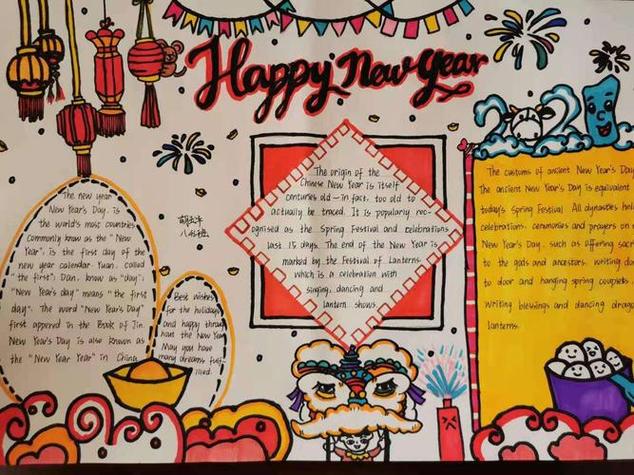 Happy New Year
2021
The new year
New Year's Day, is
the world's most countries
commonly know as the "New
Year", is the first day of the
new year calendar. Yuan, called
"the first"; Dan, know as "day";
"New Year's day" means "the first
day". The word "New Year's Day"
first appered in the Book of Jin.
New Year's Day is also known as
the "New Year Year" in China
Best wishes
for the holidays
and happy throu
hout the New Year
May you have
many dreams fulf
illed.
八
The origin of the
Chinese New Year is itself
centuries old - in fact, too old to
actually be traced. It is popularly rec-
ognised as the Spring Festival and celebrations
last 15 days. The end of the New Year is
marked by the Festival of Lanterns,
which is a celebration with
singing, dancing and
lantern shows.
The customs of ancient New Year's Day
The ancient New Year's Day is equivalent
today's Spring Festival. All dynasties hel
celebrations, ceremonies and prayers on
New Year's Day, such as offering sacr
to the gods and ancestors, writing do
to door and hanging spring couplets
writing blessings and dancing drag
lanterns.